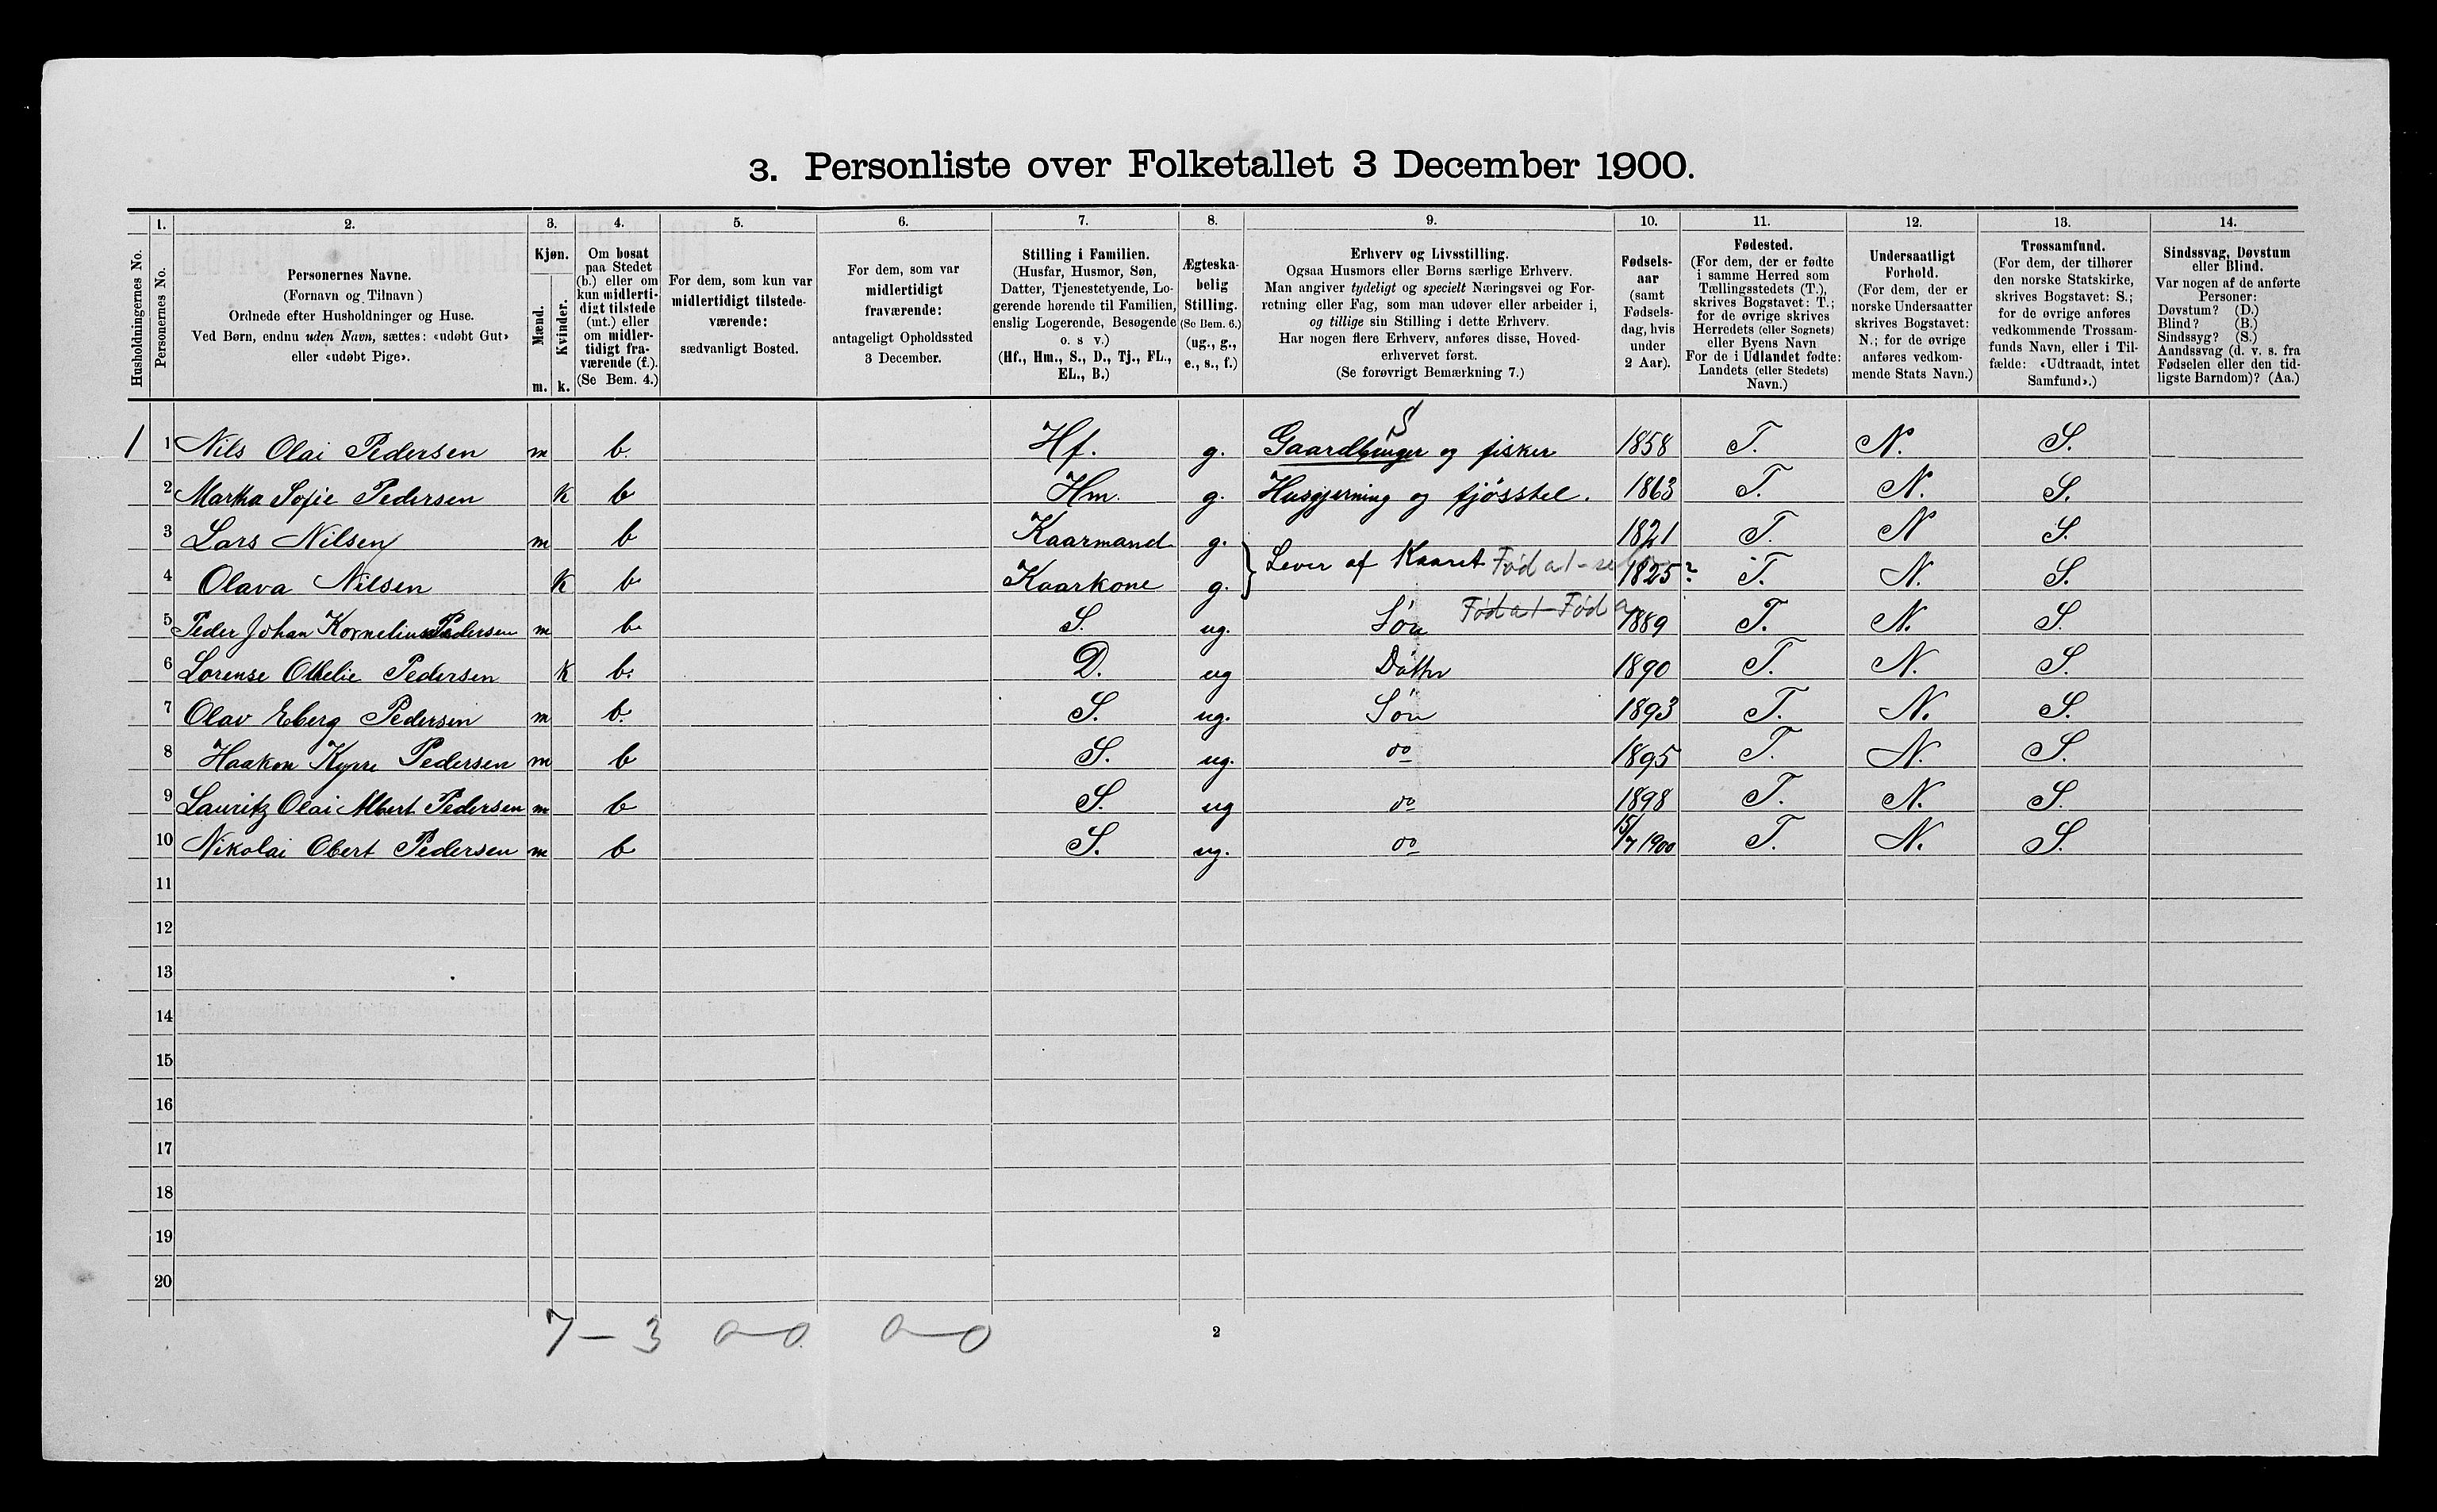 3. Personliste over Folketallet 3 December 1900.
1. 2. 3. 4. 5. 6. 7. 8. 9. 10. 11. 12. 13. 14.
Husholdningernes No.
Personernes No.
Personernes Navne.
(Fornavn og Tilnavn)
Ordnede efter Husholdninger og Huse.
Ved Børn, endnu uden Navn, sættes: «udøbt Gut»
eller «udøbt Pige».
Kjøn.
Mænd.
Kvinder.
m. k.
Om bosat
paa Stedet
(b.) eller om
kun midlerti-
digt tilstede
(mt.) eller
om midler-
tidigt fra-
værende (f.).
(Se Bem. 4.)
For dem, som kun var
midlertidigt tilstede-
værende:
sædvanligt Bosted.
For dem, som var
midlertidigt
fraværende:
antageligt Opholdssted
3 December.
Stilling i Familien.
(Husfar, Husmor, Søn,
Datter, Tjenestetyende, Lo-
gerende hørende til Familien,
enslig Logerende, Besøgende
o. s v.)
(Hf., Hm., S., D., Tj., FL.,
EL., B.)
Ægteska-
belig
Stilling.
(Se Bem. 6.)
(ug., g.,
e., s., f.)
Erhverv og Livsstilling.
Ogsaa Husmors eller Børns særlige Erhverv.
Man angiver tydeligt og specielt Næringsvei og For-
retning eller Fag, som man udøver eller arbeider i,
og tillige sin Stilling i dette Erhverv.
Har nogen flere Erhverv, anføres disse, Hoved-
erhvervet først.
(Se forøvrigt Bemærkning 7.)
Fødsels-
aar
(samt
Fødsels-
dag, hvis
under
2 Aar).
Fødested.
(For dem, der er fødte
i samme Herred som
Tællingsstedets (T.),
skrives Bogstavet: T.;
for de øvrige skrives
Herredets (eller Sognets)
eller Byens Navn
For de i Udlandet fødte:
Landets (eller Stedets)
Navn.)
Undersaatligt
Forhold.
(For dem, der er
norske Undersaatter
skrives Bogstavet:
N.; for de øvrige
anføres vedkom-
mende Stats Navn.)
Trossamfund.
(For dem, der tilhører
den norske Statskirke,
skrives Bogstavet: S.;
for de øvrige anføres
vedkommende Trossam-
funds Navn, eller i Til-
fælde: «Udtraadt, intet
Samfund».)
Sindssvag, Døvstum
eller Blind.
Var nogen af de anførte
Personer:
Døvstum? (D.)
Blind? (B.)
Sindssyg? (S.)
Aandssvag (d. v. s. fra
Fødselen eller den tid-
ligste Barndom)? (Aa.)
S
1 1 Nils Olai Pedersen m b. Hf. g. Gaardbruger og fisker 1858 T. N. S.
2 Martha Sofie Pedersen k b Hm. g. Husgjerning og fjösstel. 1863 T. N. S.
3 Lars Nilsen m b Kaarmand g. 1821 T. N S.
Lever af Kaaret Föd al - se
4 Olava Nilsen k b Kaarkone g. 1825? T. N. S.
Föd al - Föd a
5 Peder Johan Kornelius Pedersen m b. S. ug. Sön 1889 T. N. S.
6 Lorense Othelie Pedersen k b. D. ug Datter 1890 T. N. S.
7 Olav Eberg Pedersen m b. S. ug. Sön 1893 T. N. S.
8 Haakon Kyrre Pedersen m b S. ug. do 1895 T. N. S.
9 Lauritz Olai Albert Pedersen m b S. ug do 1898 T. N. S.
10 Nikolai Obert Pedersen m b S. ug. do 15/7 1900 T. N. S.
11
12
13
14
15
16
17
18
19
20
7 - 3 0-0 0-0
2